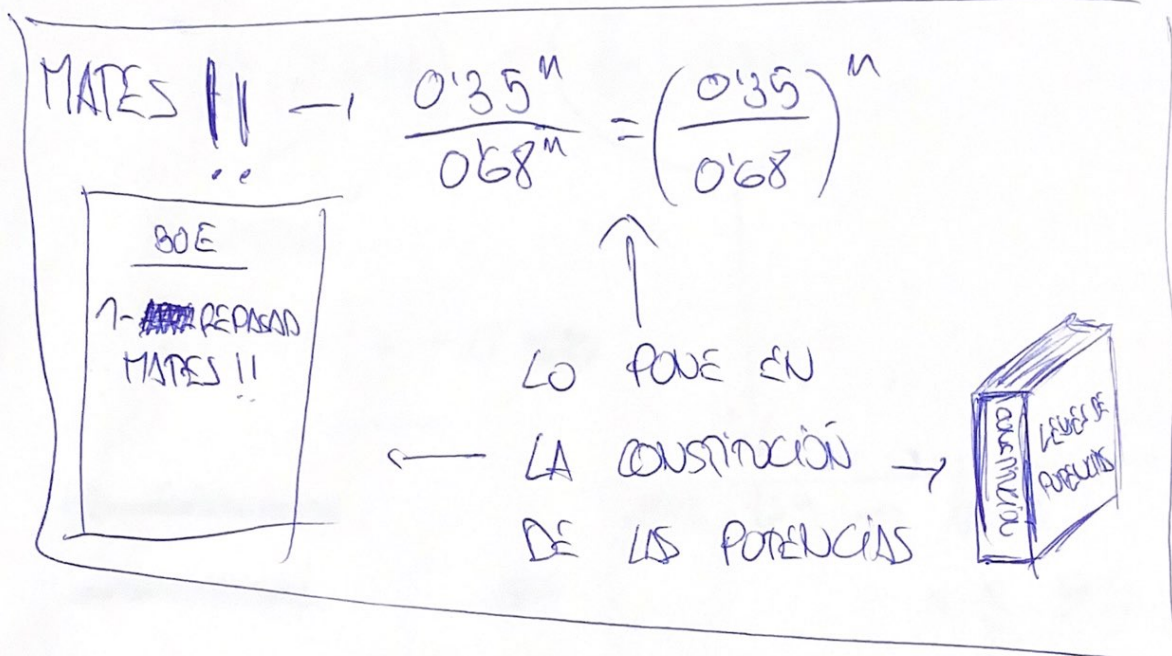 MATES !! → 0'35ⁿ / 0'68ⁿ = (0'35 / 0'68)ⁿ
BOE
1- REPASAD
MATES !!
LO PONE EN
LA CONSTITUCIÓN
DE LAS POTENCIAS
LEYES DE
POTENCIAS